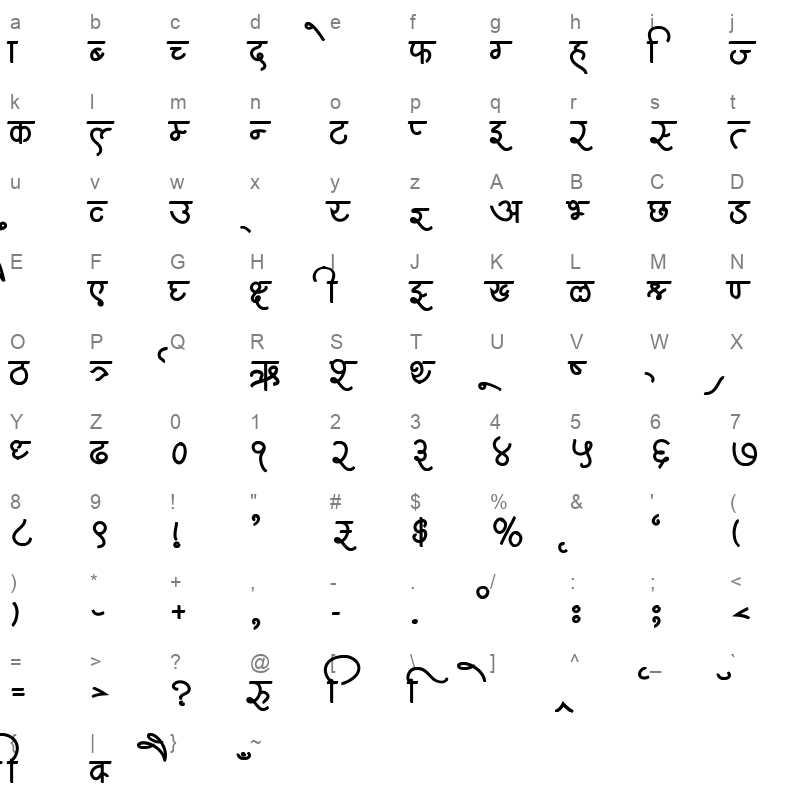 a b c d e f g h i j
ा ब्‍ च्‍ द े फ ग्‍ ह ि ज्‍
k l m n o p q r s t
क ल्‍ म्‍ न्‍ ट प्‍ इ र स्‍ त्‍
u v w x y z A B C D
ु व्‍ उ ्‍ य्‍ अ भ्‍ छ ड
E F G H I J K L M N
ै ए घ्‍ क्ष्‍ ी झ्‍ ख्‍ ळ ण्‍
O P Q R S T U V W X
ठ त्र्‍ ऋ श्‍ थ्‍ ू ष्‍
Y Z 0 1 2 3 4 5 6 7
ध्‍ ढ ० १ २ ३ ४ ५ ६ ७
8 9 ! " # $ % & ' (
८ ९ ! ’ $ % ‘ (
) * + , - . / : ; <
) + , - . ं : ; <
= > ? @ [ \ ] ^ _ `
= > ? रु ि ि
{ | } ~
ी क्‍